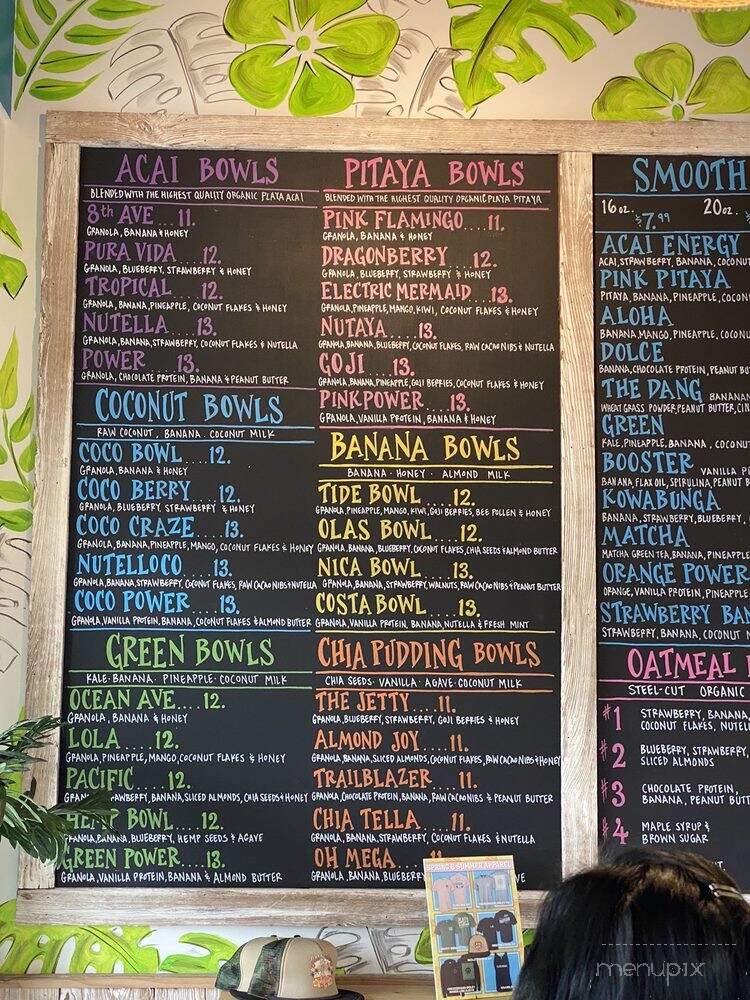 ACAI BOWLS
BLENDED WITH THE HIGHEST QUALITY ORGANIC PLAYA ACAI
8th AVE ... 11.
GRANOLA, BANANA & HONEY
PURA VIDA ... 12.
GRANOLA, BLUEBERRY, STRAWBERRY & HONEY
TROPICAL ... 12.
GRANOLA, BANANA, PINEAPPLE, COCONUT FLAKES & HONEY
NUTELLA .... 13.
GRANOLA, BANANA, STRAWBERRY, COCONUT FLAKES & NUTELLA
POWER .... 13.
GRANOLA, CHOCOLATE PROTEIN, BANANA & PEANUT BUTTER
COCONUT BOWLS
RAW COCONUT, BANANA. COCONUT MILK
COCO BOWL .... 12.
GRANOLA, BANANA & HONEY
COCO BERRY .... 12.
GRANOLA, BLUEBERRY, STRAWBERRY & HONEY
COCO CRAZE .... 13.
GRANOLA, BANANA, PINEAPPLE, MANGO, COCONUT FLAKES & HONEY
NUTELLOCO .... 13.
GRANOLA, BANANA, STRAWBERRY, COCONUT FLAKES, RAW CACAO NIBS & NUTELLA
COCO POWER .... 13.
GRANOLA, VANILLA PROTEIN, BANANA, COCONUT FLAKES & ALMOND BUTTER
GREEN BOWLS
KALE · BANANA · PINEAPPLE · COCONUT MILK
OCEAN AVE .... 12.
GRANOLA, BANANA & HONEY
LOLA ..... 12.
GRANOLA, PINEAPPLE, MANGO, COCONUT FLAKES & HONEY
PACIFIC .... 12.
BANANA, SLICED ALMONDS, CHIA SEEDS & HONEY
HEMP BOWL .... 12.
GRANOLA, BANANA, BLUEBERRY, HEMP SEEDS & AGAVE
GREEN POWER .... 13.
GRANOLA, VANILLA PROTEIN, BANANA & ALMOND BUTTER
PITAYA BOWLS
BLENDED WITH THE HIGHEST QUALITY ORGANIC PLAYA PITAYA
PINK FLAMINGO .... 11.
GRANOLA, BANANA & HONEY
DRAGONBERRY .... 12.
GRANOLA, BLUEBERRY, STRAWBERRY & HONEY
ELECTRIC MERMAID .... 13.
GRANOLA, PINEAPPLE, MANGO, KIWI, COCONUT FLAKES & HONEY
NUTAYA .... 13.
GRANOLA, BANANA, BLUEBERRY, COCONUT FLAKES, RAW CACAO NIBS & NUTELLA
GOJI .... 13.
GRANOLA, BANANA, PINEAPPLE, GOJI BERRIES, COCONUT FLAKES & HONEY
PINK POWER .... 13.
GRANOLA, VANILLA PROTEIN, BANANA & HONEY
BANANA BOWLS
BANANA · HONEY · ALMOND MILK
TIDE BOWL .... 12.
GRANOLA, PINEAPPLE, MANGO, KIWI, GOJI BERRIES, BEE POLLEN & HONEY
OLAS BOWL .... 12.
GRANOLA, BANANA, BLUEBERRY, COCONUT FLAKES, CHIA SEEDS & ALMOND BUTTER
NICA BOWL .... 13.
GRANOLA, BANANA, STRAWBERRY, WALNUTS, RAW CACAO NIBS & PEANUT BUTTER
COSTA BOWL .... 13.
GRANOLA, VANILLA PROTEIN, BANANA, NUTELLA & FRESH MINT
CHIA PUDDING BOWLS
CHIA SEEDS · VANILLA · AGAVE · COCONUT MILK
THE JETTY .... 11.
GRANOLA, BLUEBERRY, STRAWBERRY, GOJI BERRIES & HONEY
ALMOND JOY .... 11.
GRANOLA, BANANA, SLICED ALMONDS, COCONUT FLAKES, RAW CACAO NIBS & HONEY
TRAILBLAZER .... 11.
GRANOLA, CHOCOLATE PROTEIN, BANANA, RAW CACAO NIBS & PEANUT BUTTER
CHIA TELLA .... 11.
GRANOLA, BANANA, STRAWBERRY, COCONUT FLAKES & NUTELLA
OH MEGA .... 11
GRANOLA, BANANA, BLUEBERRY
SMOOTH
16 oz. 20 oz.
$7.99
ACAI ENERGY
ACAI, STRAWBERRY, BANANA, COCONUT
PINK PITAYA
PITAYA, BANANA, PINEAPPLE, COCON
ALOHA
BANANA, MANGO, PINEAPPLE, COCONUT
DOLCE
BANANA, CHOCOLATE PROTEIN, PEANUT BU
THE DANG BANANA
WHEAT GRASS POWDER, PEANUT BUTTER, CIN
GREEN
KALE, PINEAPPLE, BANANA, COCON
BOOSTER VANILLA P
BANANA, FLAX OIL, SPIRULINA, PEANUT B
KOWABUNGA
BANANA, STRAWBERRY, BLUEBERRY,
MATCHA
MATCHA GREEN TEA, BANANA, PINEAPPLE
ORANGE POWER
ORANGE, VANILLA PROTEIN, PINEAPPLE
STRAWBERRY BAN
STRAWBERRY, BANANA, COCONUT M
OATMEAL
STEEL-CUT ORGANIC
#1 STRAWBERRY, BANANA,
COCONUT FLAKES, NUTEL
#2 BLUEBERRY, STRAWBERRY,
SLICED ALMONDS
#3 CHOCOLATE PROTEIN,
BANANA, PEANUT BUTT
#4 MAPLE SYRUP &
BROWN SUGAR
SPRING & SUMMER APPAREL
menupix